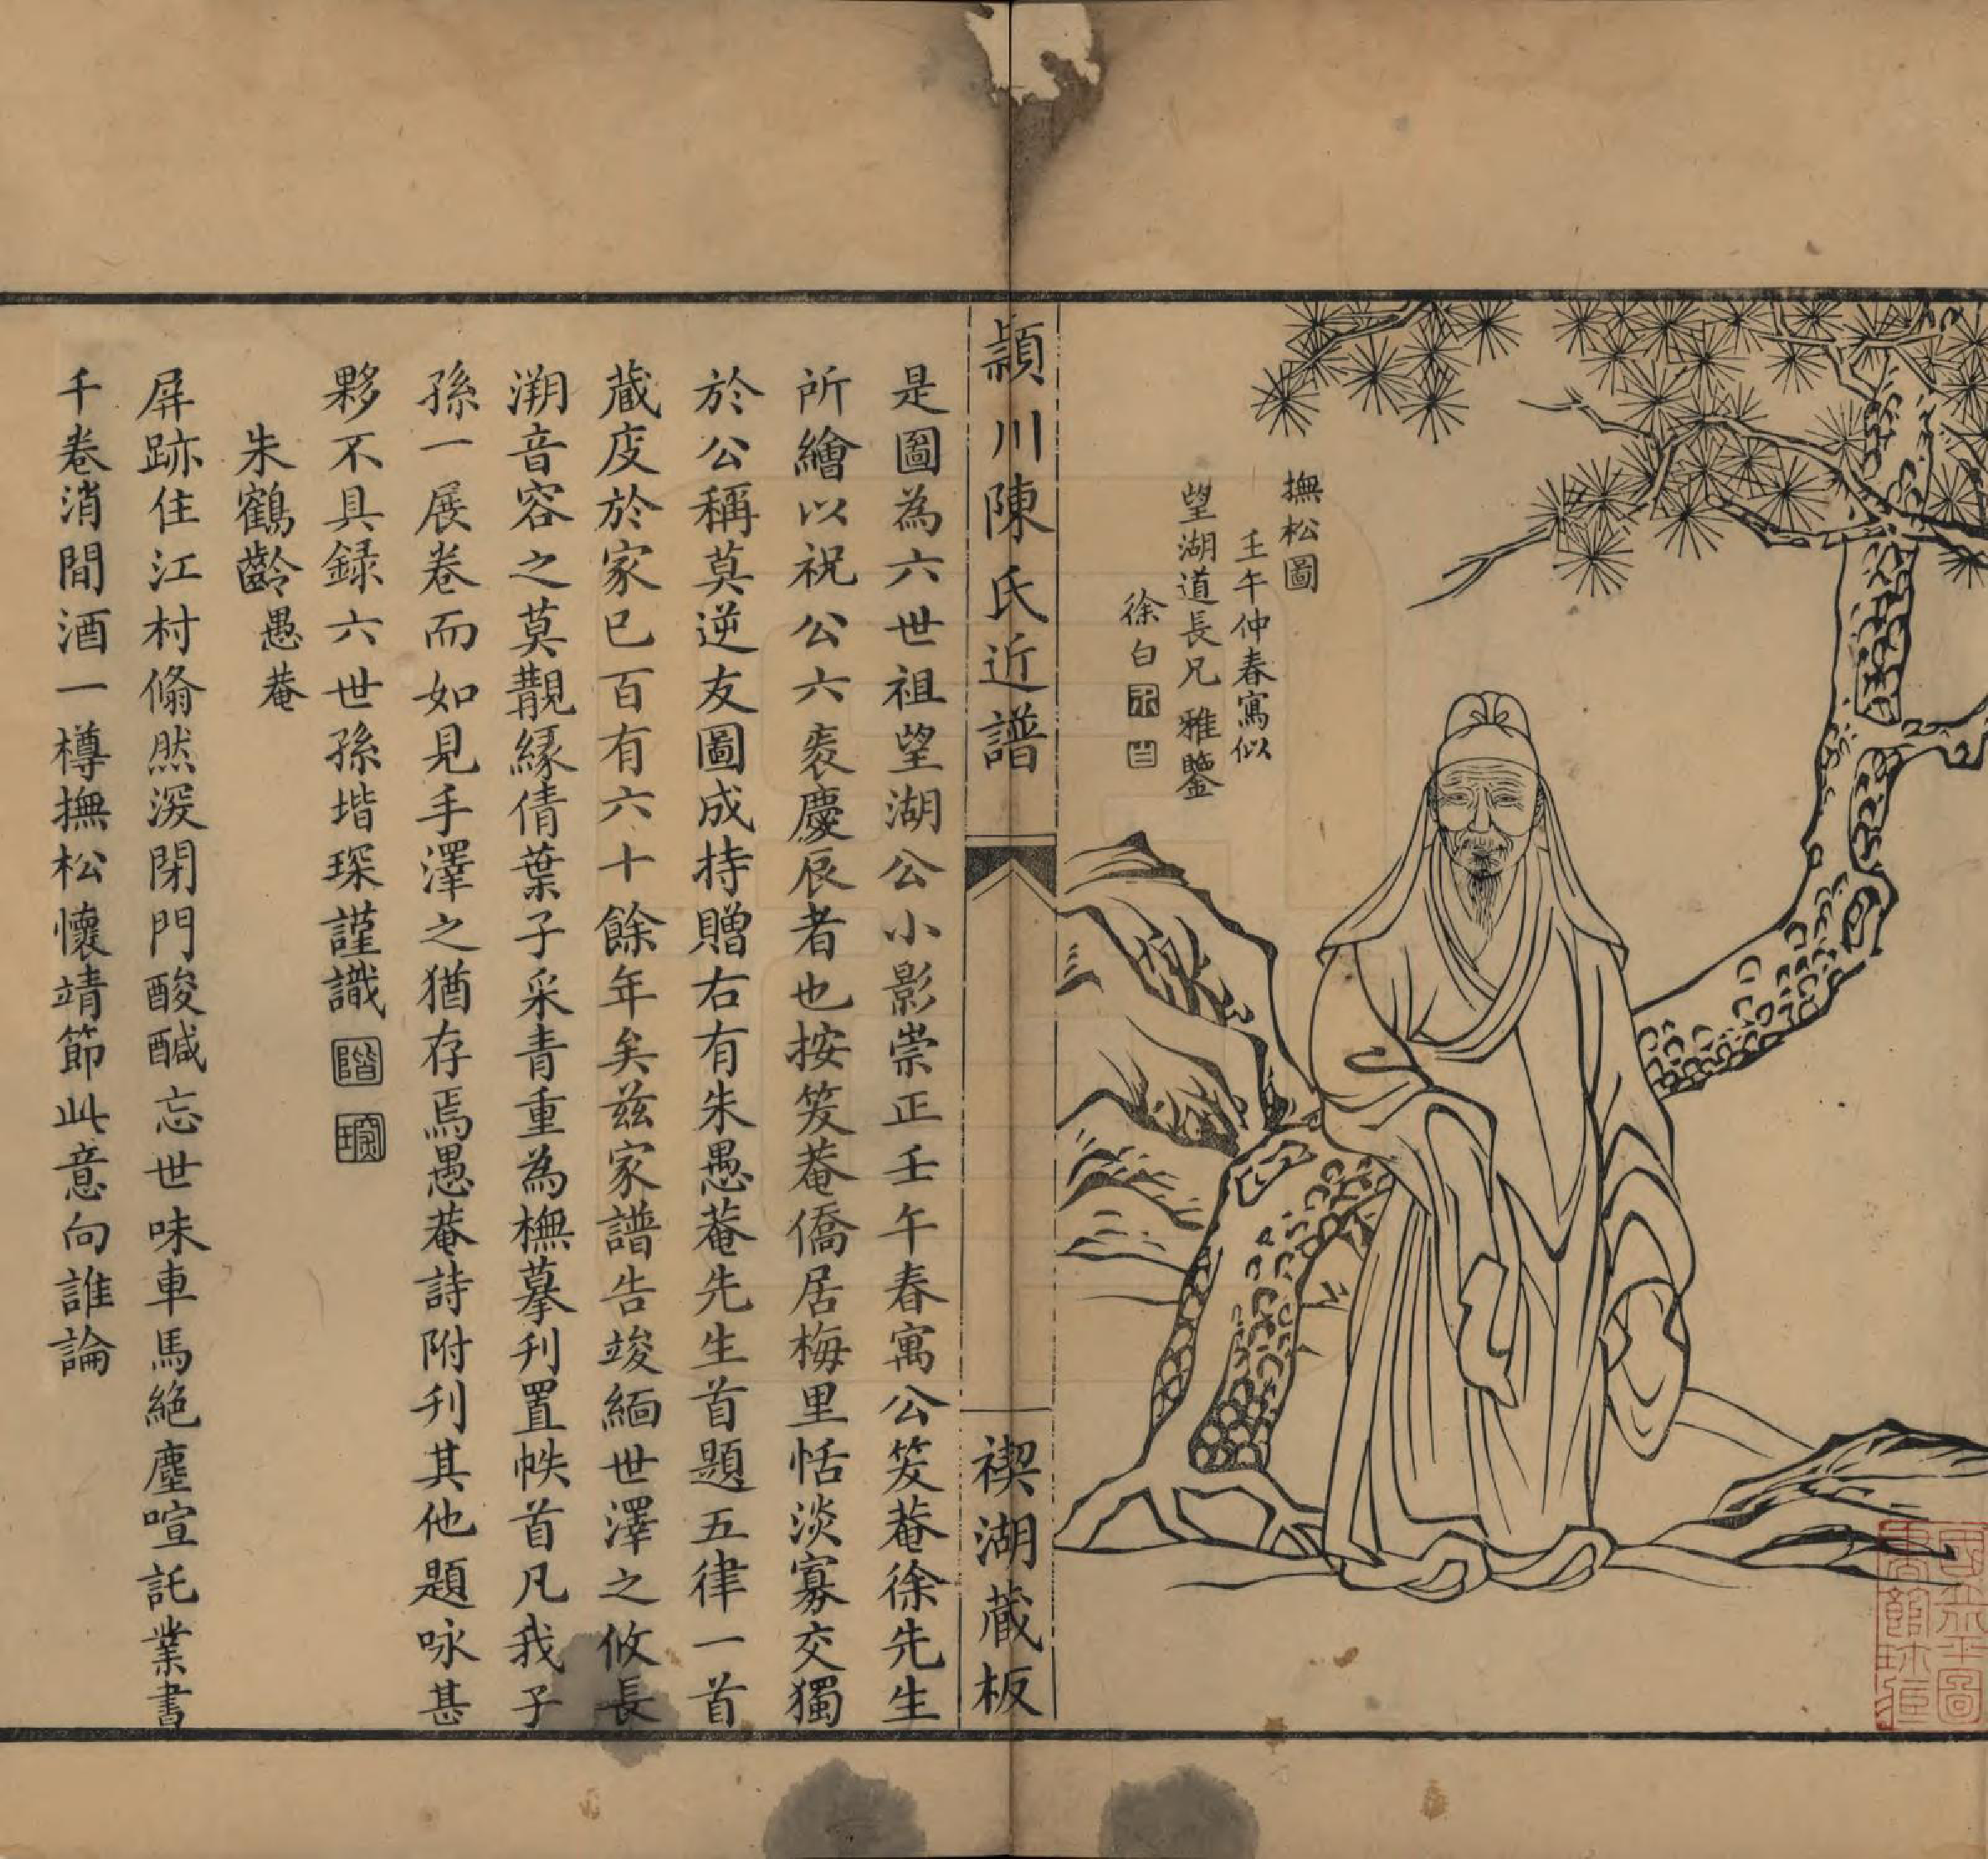 撫松圖
壬午仲春寫似
望湖道長兄雅鑒
徐白
潁川陳氏近譜
禊湖蔵板
是圖為六世祖望湖公小影崇正壬午春寓公笅菴徐先生
所繪以祝公六袠慶辰者也按笅菴僑居梅里恬淡寡交獨
於公稱莫逆友圖成持贈右有朱愚菴先生首題五律一首
蔵庋於家已百有六十餘年矣兹家譜告竣緬世澤之攸長
溯音容之莫覯緣倩葉子采青重為橅摹刋置帙首凡我子
孫一展卷而如見手澤之猶存焉愚菴詩附刋其他題咏甚
夥不具録六世孫堦琛謹識
朱鶴齡愚菴
屏跡住江村翛然深閉門酸醎忘世味車馬絶塵喧託業書
千卷消閒酒一樽撫松懷靖節此意向誰論